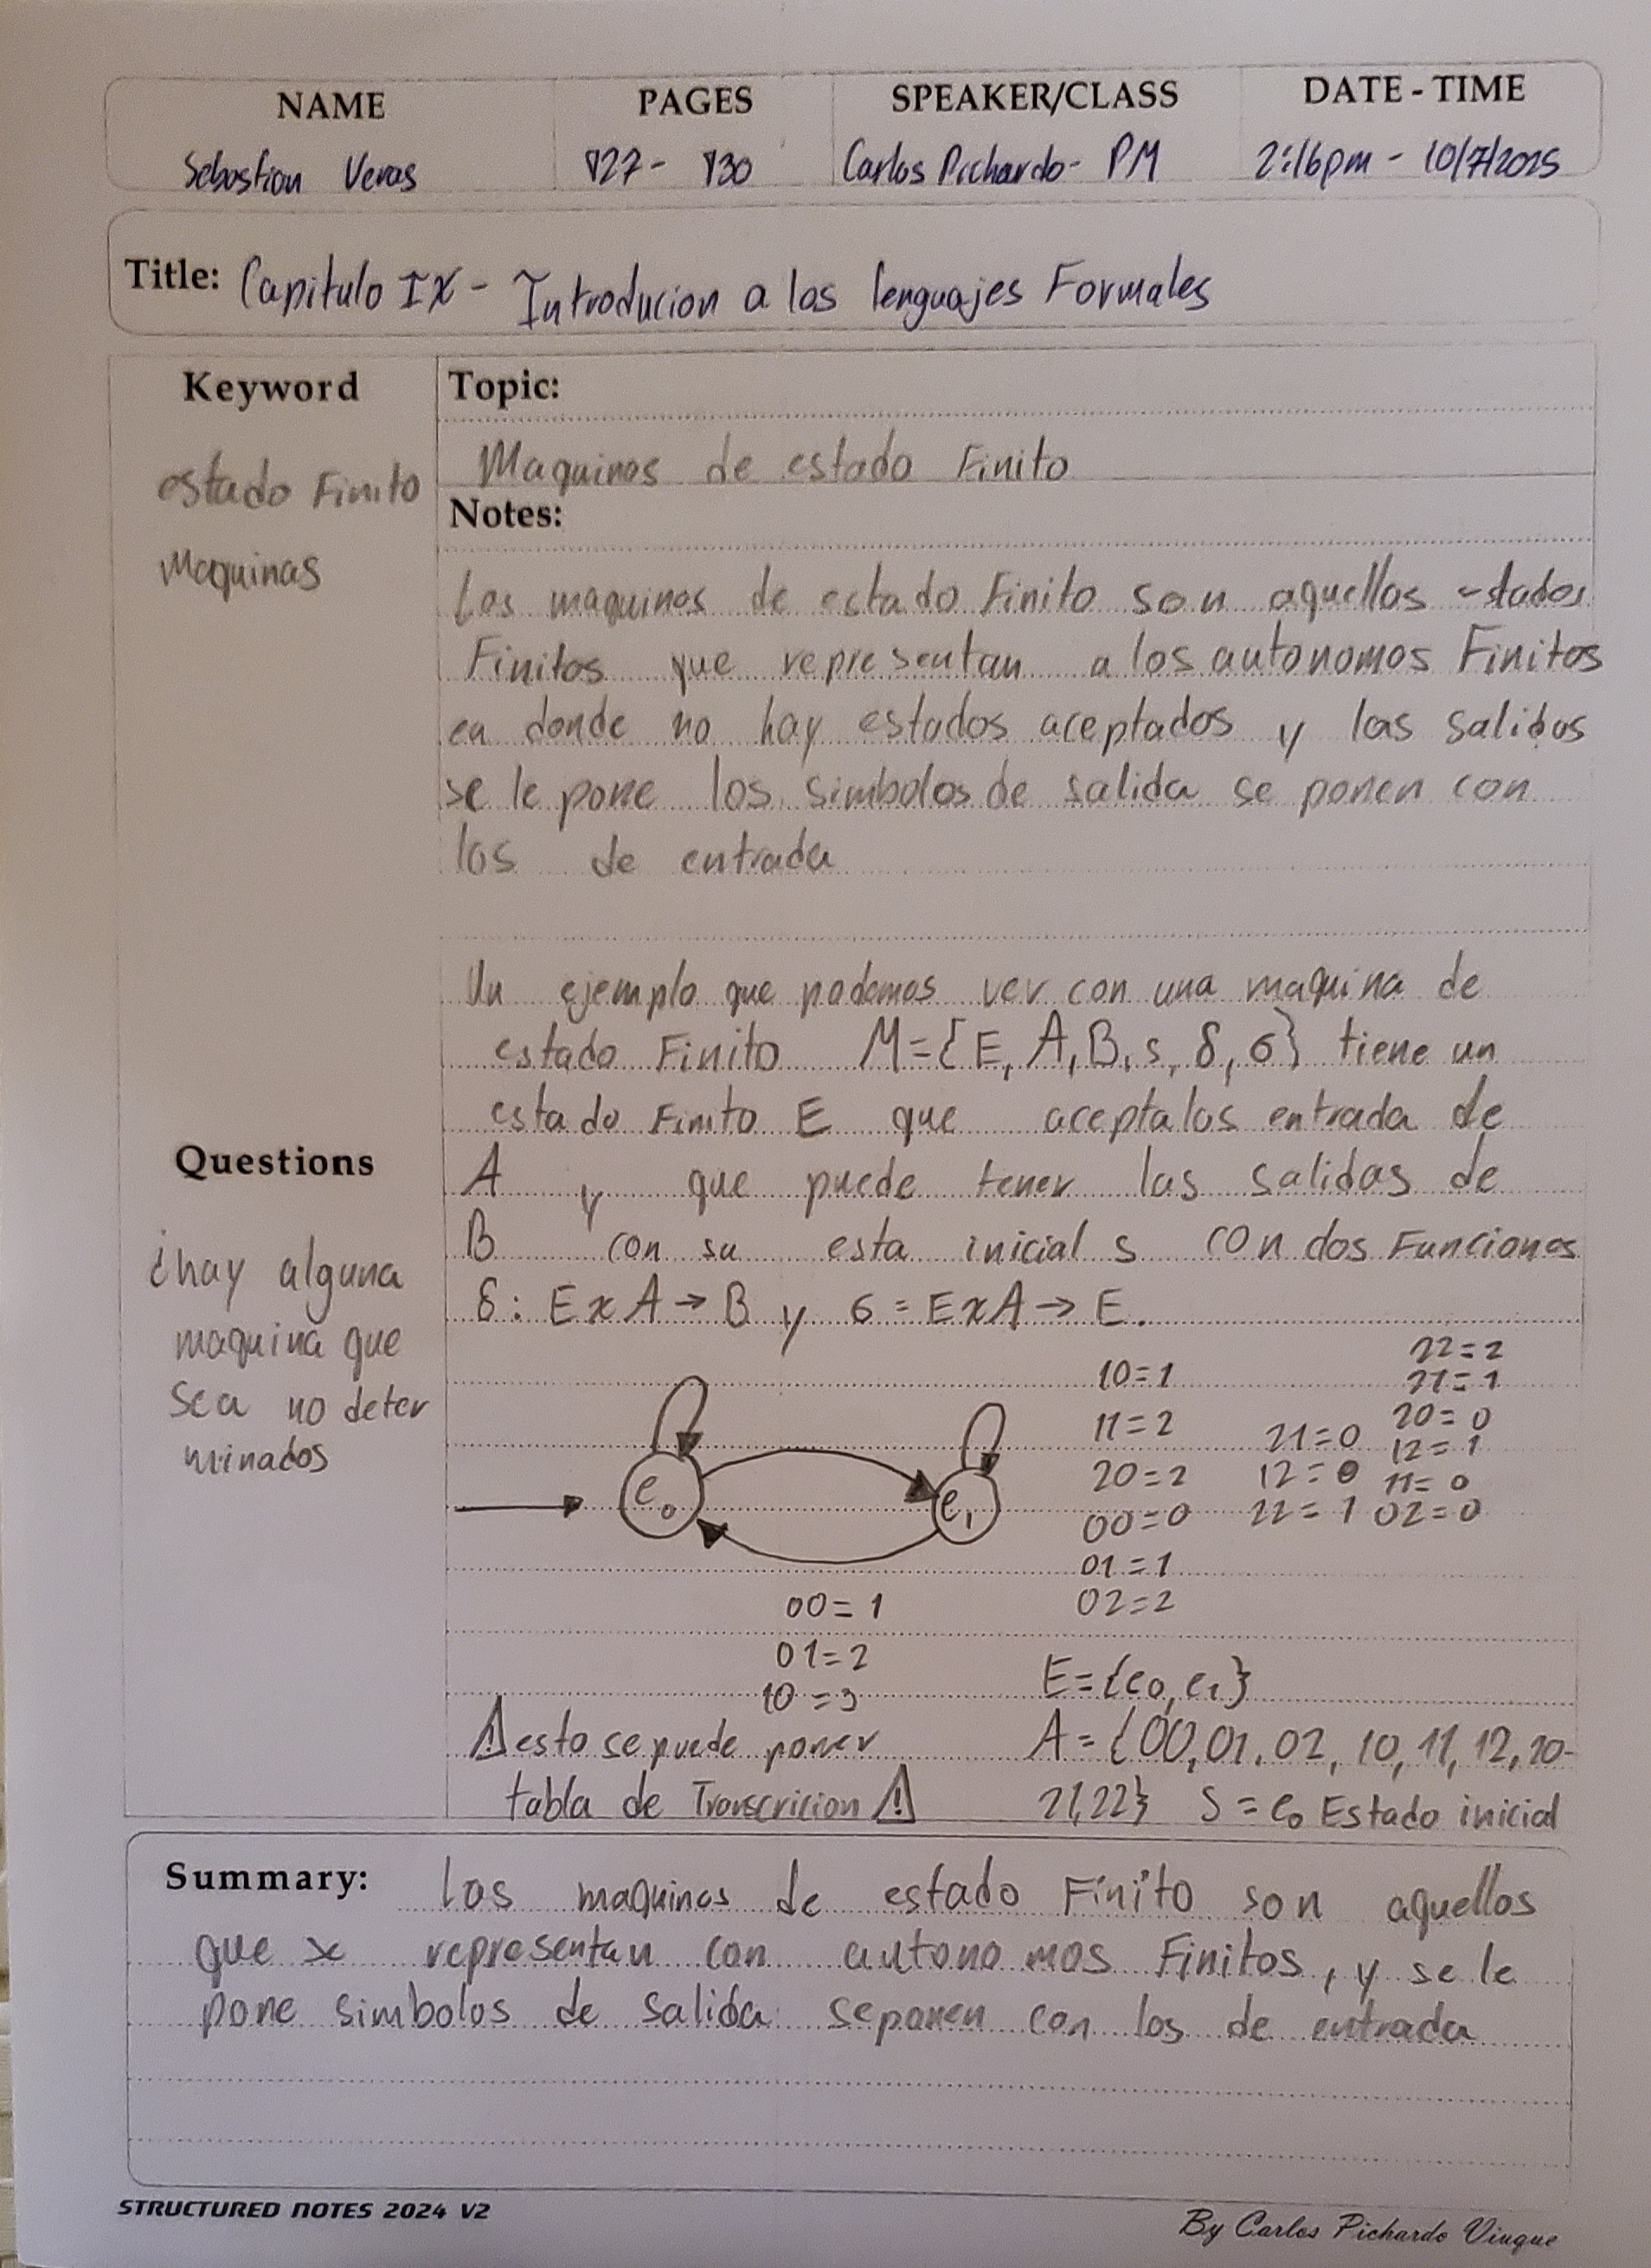 NAME PAGES SPEAKER/CLASS DATE - TIME
Sebastian Veras 127- 130 Carlos Pichardo- PM 2:16pm - 10/7/2025
Title: Capitulo IX - Introducion a los lenguajes Formales
Keyword
estado Finito
Maquinas
Topic:
Maquinas de estado Finito
Notes:
Las maquinas de estado Finito son aquellas -stados
Finitos que representan a los autonomos Finitos
en donde no hay estados aceptados y las salidas
se le pone los simbolos de salida se ponen con
los de entrada
Un ejemplo que podemos ver con una maquina de
estado Finito M={E, A, B, s, δ, σ} tiene un
estado Finito E que acepta los entrada de
A y que puede tener las salidas de
B con su esta inicial s con dos Funciones
δ: ExA→B y σ = ExA→E.
Questions
¿hay alguna
maquina que
sea no deter
minados
e0 e1
10=1
11=2
20=2
00=0
01=1
02=2
21=0
12=0
22=1
22=2
21=1
20=0
12=1
11=0
02=0
00=1
01=2
10=3
E={e0,e1}
⚠esto se puede poner A={00,01,02,10,11,12,20-
tabla de Transcricion ⚠ 21,22} S=e0 Estado inicial
Summary: Las maquinas de estado Finito son aquellos
que se representan con autonomos Finitos, y se le
pone simbolos de salida se ponen con los de entrada
STRUCTURED NOTES 2024 V2
By Carlos Pichardo Viuque